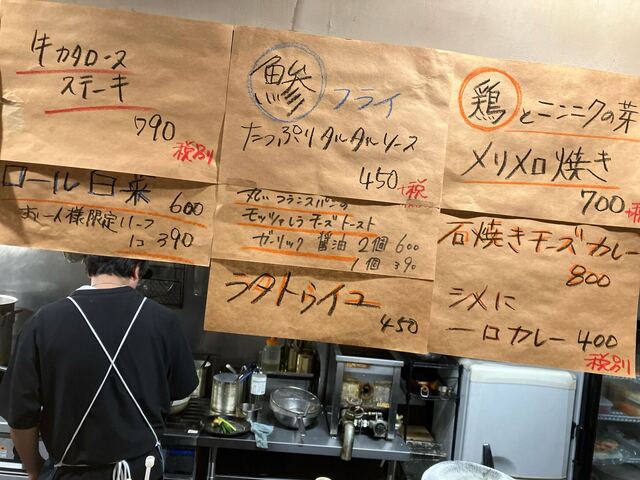 牛カタロース
ステーキ
790
税別
鯵 フライ
たっぷりタルタルソース
450
+税
鶏とニンニクの芽
メリメロ焼き
700
+税
ロール白菜 600
お一人様限定ハーフ
1コ 390
丸いフランスパンの
モッツァレラチーズトースト
ガーリック醤油 2個 600
1個 390
ラタトゥイユ
450
石焼きチーズカレー
800
シメに
一口カレー 400
税別